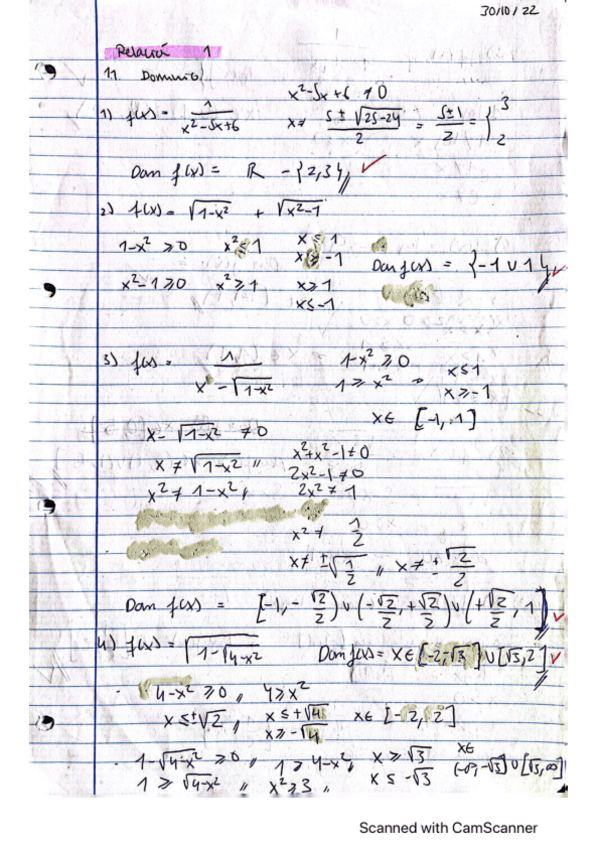 30/10/22
Relación 1
11. Dominio
x²-5x+6 ≠ 0
1) f(x) = 1/(x²-5x+6) x = (5 ± √(25-24))/2 = (5±1)/2 = { 3 2
Dom f(x) = ℝ - {2,3} ✓
2) f(x) = √(1-x²) + √(x²-1)
1-x² ≥ 0 x² ≤ 1 x ≤ 1 x ≥ -1 Dom f(x) = {-1 ∪ 1} ✓
x²-1 ≥ 0 x² ≥ 1 x ≥ 1 x ≤ -1
3) f(x) = 1/(x - √(1-x²)) 1-x² ≥ 0
1 ≥ x² x ≤ 1 x ≥ -1
x ∈ [-1, 1]
x - √(1-x²) ≠ 0
x ≠ √(1-x²) x²+x²-1 ≠ 0
2x²-1 ≠ 0
x² ≠ 1-x² 2x² ≠ 1
x² ≠ 1/2
x ≠ ±√(1/2) x ≠ ± √2/2
Dom f(x) = [-1, -√2/2) ∪ (-√2/2, +√2/2) ∪ (+√2/2, 1] ✓
4) f(x) = √(1-√(4-x²)) Dom f(x) = x ∈ [-2, -√3] ∪ [√3, 2] ✓
4-x² ≥ 0 4 ≥ x²
x ≤ ±√2 x ≤ +√4 x ≥ -√4 x ∈ [-2, 2]
1-√(4-x²) ≥ 0 1 ≥ 4-x² x ≥ √3 x ∈
1 ≥ √(4-x²) x² ≥ 3 x ≤ -√3 (-∞, -√3] ∪ [√3, ∞)
Scanned with CamScanner